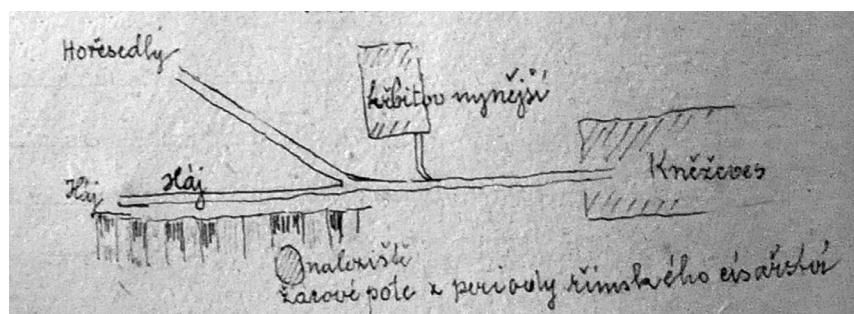 Hořesedly
křbitov nynější
Kněževes
Háj
Háj
naleziště
žárové pole z periody římského císařství